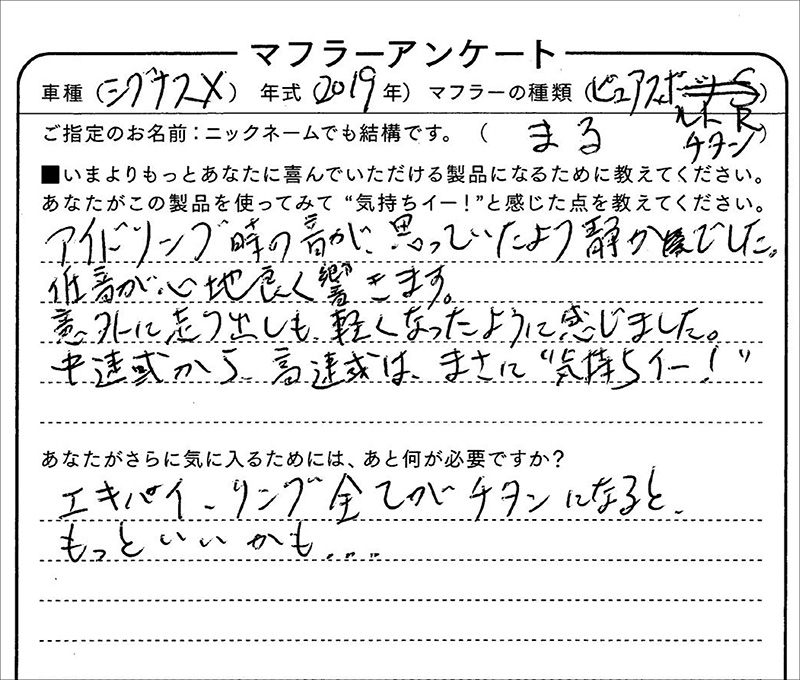 マフラーアンケート
車種(シグナスX) 年式(2019年) マフラーの種類(ピュアスポーツS)
ルトR
ご指定のお名前：ニックネームでも結構です。( まる )
チタン
■いまよりもっとあなたに喜んでいただける製品になるために教えてください。
あなたがこの製品を使ってみて“気持ちイー！”と感じた点を教えてください。
アイドリング時の音が、思っていたよう静かでした。
低音が心地良く響きます。
意外に走り出しも、軽くなったように感じました。
中速或から、高速或は、まさに“気持ちイー！”
あなたがさらに気に入るためには、あと何が必要ですか？
エキパイ、リング全てがチタンになると、
もっといいかも....